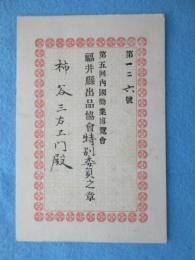 第一二六號
第五回內國勸業博覽會
福井縣出品協會特別委員之章
柿谷三右エ門殿